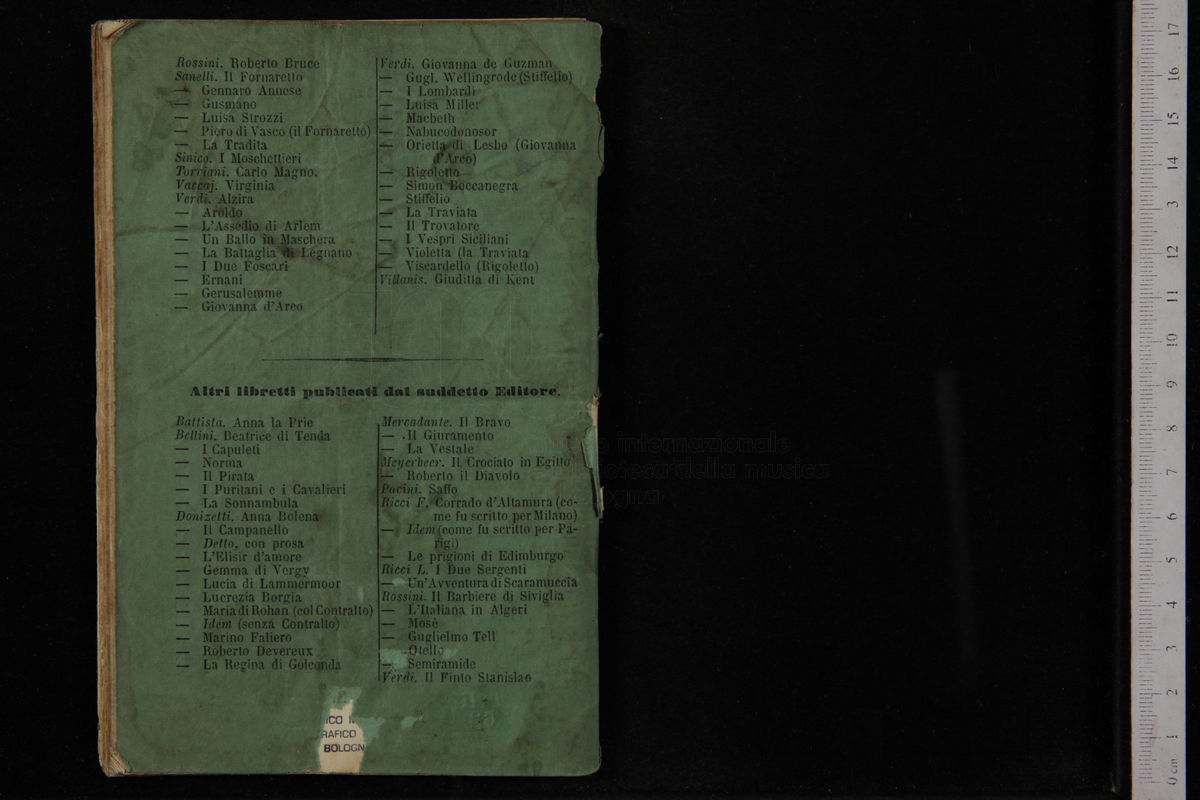 Rossini. Roberto Bruce
Sanelli. Il Fornaretto
— Gennaro Annese
— Gusmano
— Luisa Strozzi
— Piero di Vasco (il Fornaretto)
— La Tradita
Sinico. I Moschettieri
Torriani. Carlo Magno.
Vaccaj. Virginia
Verdi. Alzira
— Aroldo
— L'Assedio di Arlem
— Un Ballo in Maschera
— La Battaglia di Legnano
— I Due Foscari
— Ernani
— Gerusalemme
— Giovanna d'Arco
Verdi. Giovanna de Guzman
— Gugl. Wellingrode (Stiffelio)
— I Lombardi
— Luisa Miller
— Macbeth
— Nabucodonosor
— Orietta di Lesbo (Giovanna
d'Arco)
— Rigoletto
— Simon Boccanegra
— Stiffelio
— La Traviata
— Il Trovatore
— I Vespri Siciliani
— Violetta (la Traviata
— Viscardello (Rigoletto)
Villanis. Giuditta di Kent
Altri libretti publicati dal suddetto Editore.
Battista. Anna la Prie
Bellini. Beatrice di Tenda
— I Capuleti
— Norma
— Il Pirata
— I Puritani e i Cavalieri
— La Sonnambula
Donizetti. Anna Bolena
— Il Campanello
— Detto, con prosa
— L'Elisir d'amore
— Gemma di Vergy
— Lucia di Lammermoor
— Lucrezia Borgia
— Maria di Rohan (col Contralto)
— Idem (senza Contralto)
— Marino Faliero
— Roberto Devereux
— La Regina di Golconda
Mercadante. Il Bravo
— Il Giuramento
— La Vestale
Meyerbeer. Il Crociato in Egitto
— Roberto il Diavolo
Pacini. Saffo
Ricci F. Corrado d'Altamura (co-
me fu scritto per Milano)
— Idem (come fu scritto per Pa-
rigi)
— Le prigioni di Edimburgo
Ricci L. I Due Sergenti
— Un'Avventura di Scaramuccia
Rossini. Il Barbiere di Siviglia
— L'Italiana in Algeri
— Mosè
— Guglielmo Tell
— Otello
— Semiramide
Verdi. Il Finto Stanislao
ICO
RAFICO
BOLOGN
internazionale
della musica
0 cm 1 2 3 4 5 6 7 8 9 10 11 12 13 14 15 16 17